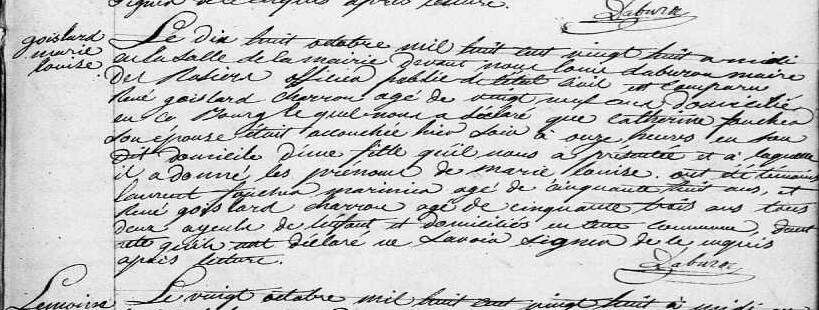 signer de ce enquis après lecture.
Daburon
goislard
marie
louise
Le dix huit octobre mil huit cent vingt huit a midi
en la salle de la mairie devant nous louis daburon maire
Des Rosiers officier public de l'état civil est comparu
René goislard charron agé de vingt neuf ans domicilié
en ce Bourg le quel nous a déclaré que catherine foucher
son épouse était accouchée hier soir à onze heures en son
dit domicile d'une fille qu'il nous a présentée et à laquelle
il a donné les prénoms de marie louise. ont été témoins
laurent foucher marinier agé de cinquante huit ans, et
René goislard charron agé de cinquante trois ans tous
deux ayeuls de l'enfant et domiciliés en cette commune, dont
acte qu'ils ont déclaré ne savoir signer de ce enquis
après lecture.
Daburon
Lemoine
Le vingt octobre mil huit cent vingt huit à midi en